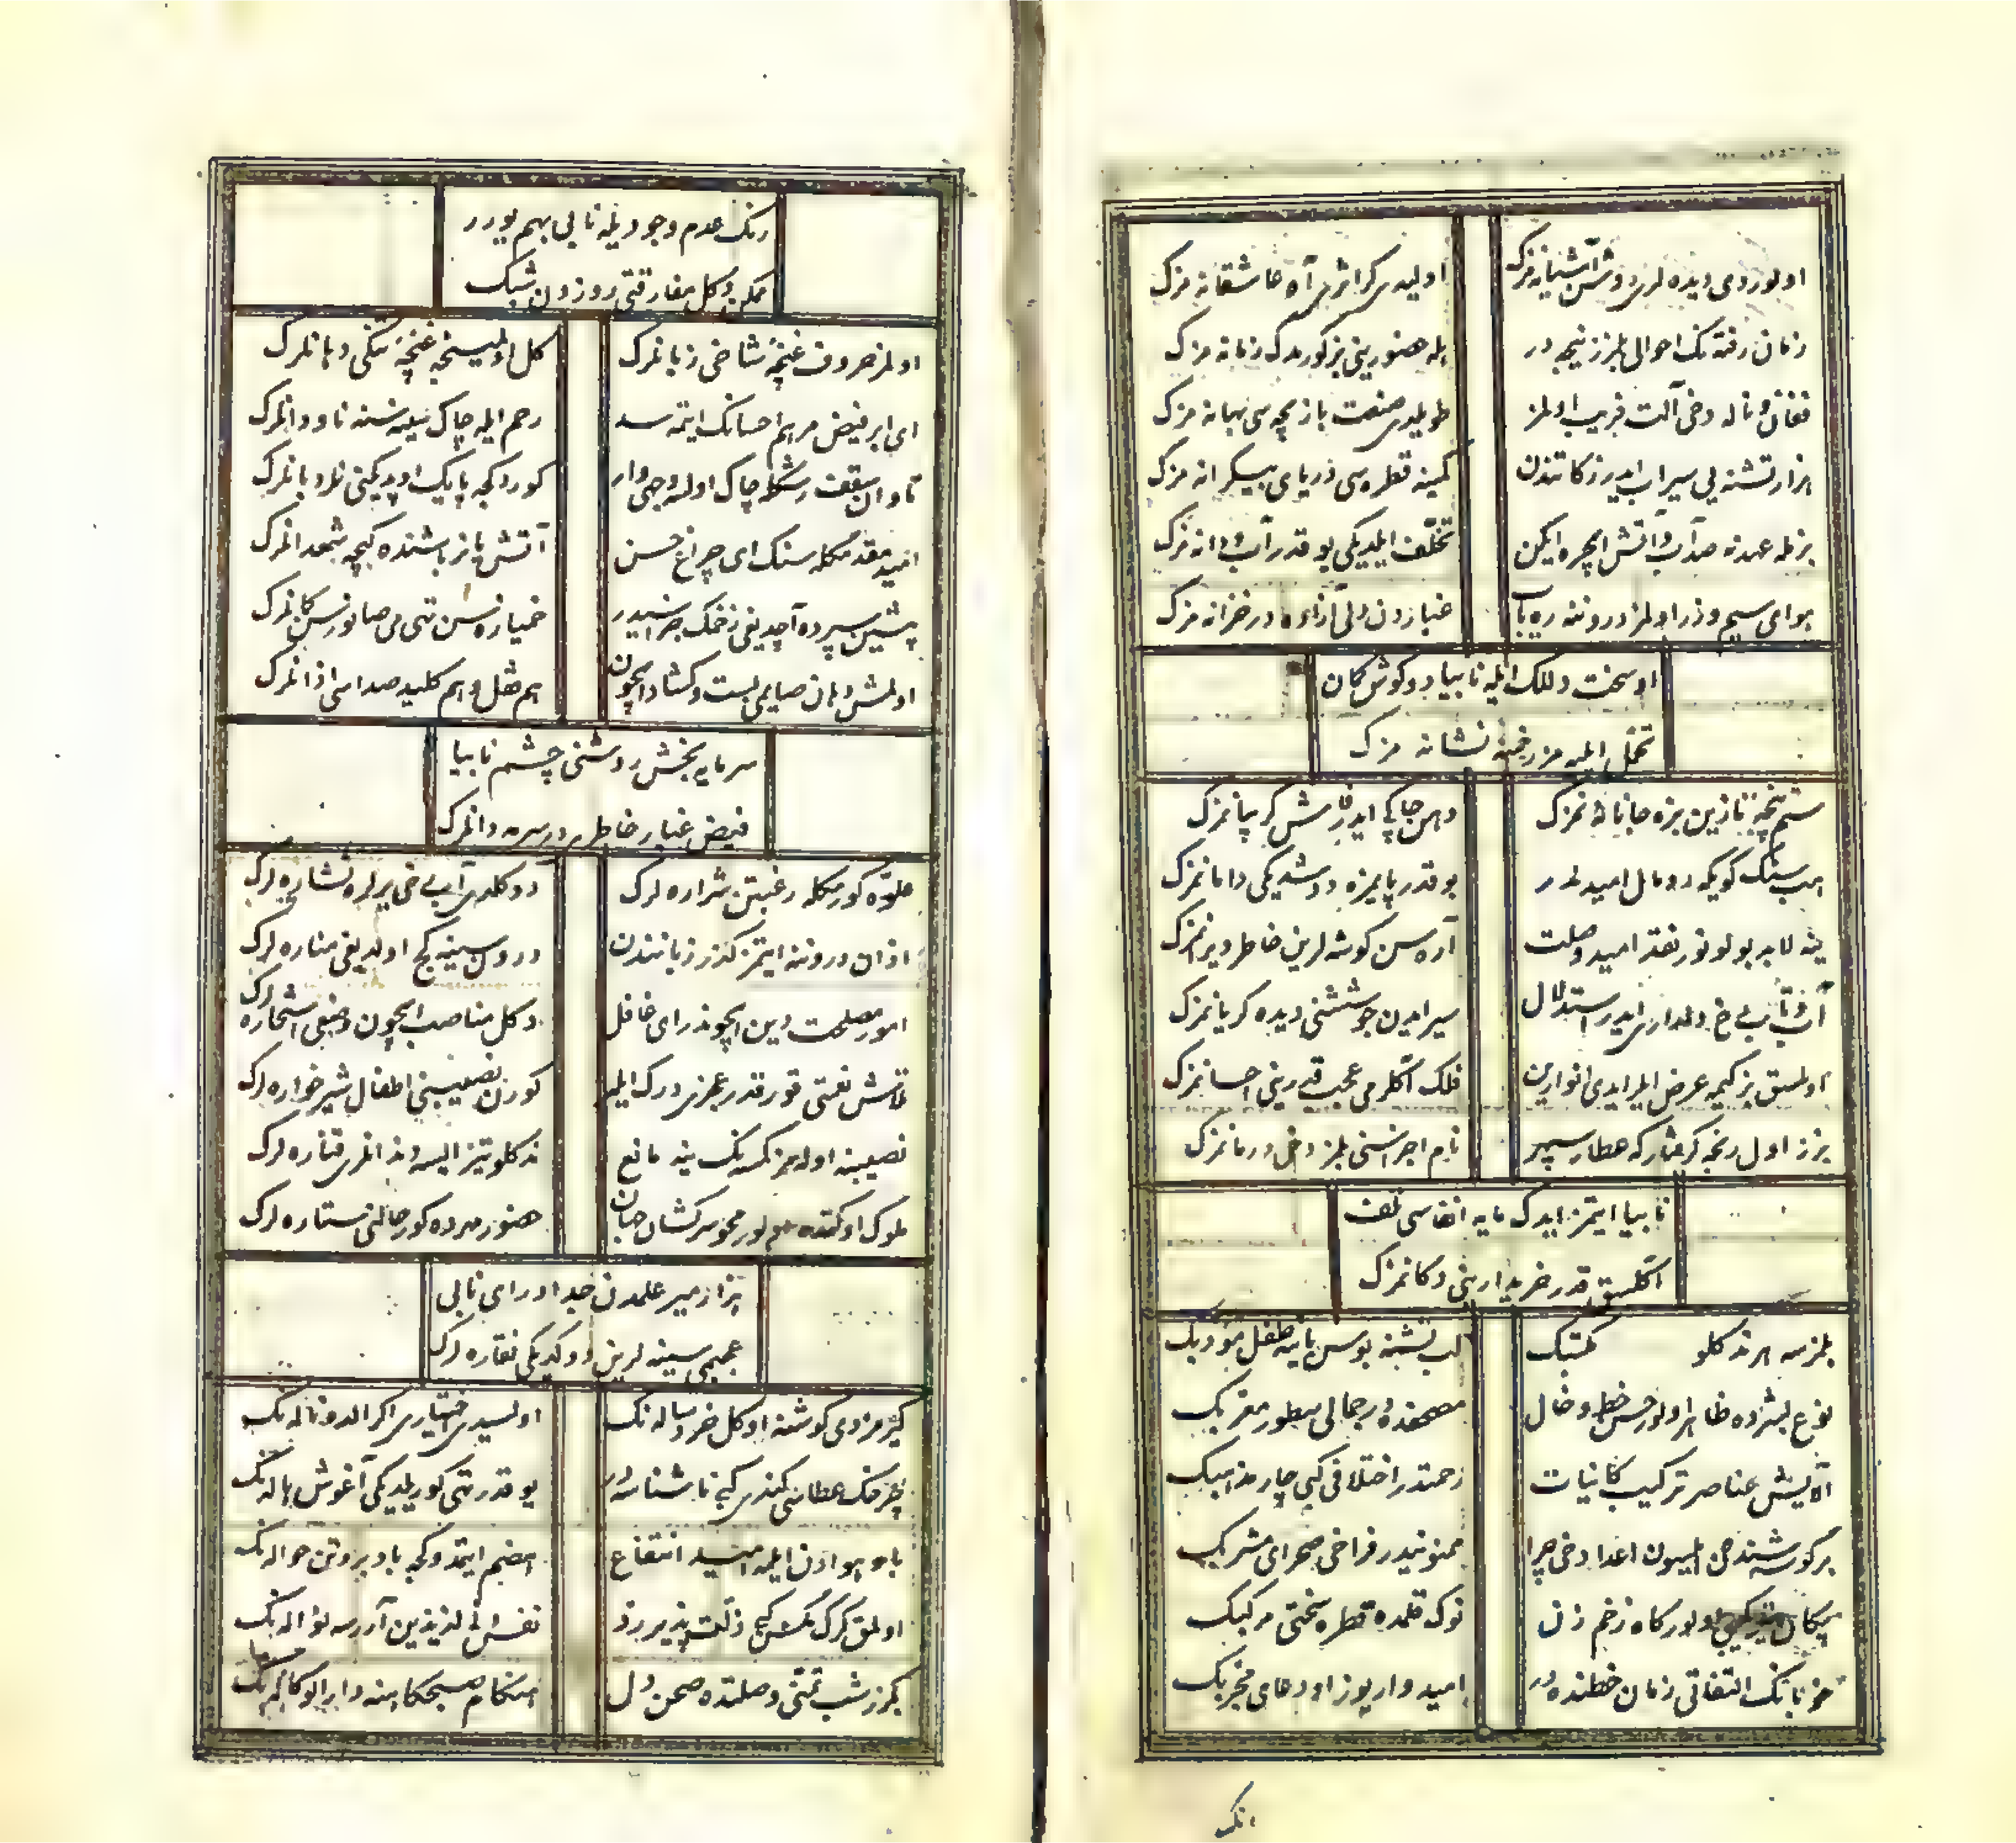 اولوردی دیده لری روشن آشیانه مزک
اولیدی کر اثری آه عاشقانه مزک
زمان رفته نک احوالی بلمزز نیجه در
بیله هنورینی بز کورمدک زمانه مزک
فغان و ناله دخی آلت فریب اولمز
طویلدی صنعت بازیچه سی بهانه مزک
هزار تشنه یی سیراب ایدرز کاتندن
کمینه قطره سی دریای بیکرانه مزک
بزمله عهدنه صد آب و آتش ایچره ایکن
تخلف ایلدیکی بو قدر آب و دانه مزک
هوای سیم و زر اولمز دروننه ره یاب
غباردن دلی آزاده در خزانه مزک
او سخت دللک ایله نابیا دوکوش کمان
تحمل ایلیه مز زخمنه نشانه مزک
ستم نیجه نازین بزه جانانه نمزک
دامن چاکی ایدر فاش کریبانمزک
سنک کویکه رومال امید ایدر
بو قدر پایمزه دوشدیکی دامانمزک
ینه لابد بولونور نقد امید وصلت
آره سن کوشه لرین خاطر ویرانمزک
آب و تاب رخ دلداری ایدر استدلال
سیر ایدن جوششنی دیده کریانمزک
اولمیق بز کیمه عرض ایلر ایدی انوارین
فلک آکلر می عجب قدرینی احسانمزک
بزز اول رنجه کرفتار که عطار سپهر
نام اجزاسنی بلمز دخی درمانمزک
نابیا ایتمز ایدک مایه انفاسی تلف
آکلسیق قدر خریدارینی دکانمزک
بلمزسه هر نه کلو کمتبک
لب تشنه بوسن یاینه طفل مؤدبک
نوع بشرده ظاهر اولور حسن خط و خال
مصحفده در جمالی سطور معربک
آلایش عناصر ترکیب کائنات
رحمتدر اختلافی کبی چار مذهبک
بر کوشه سنده من ایلسون اعدا دخی چرا
ممنوعیدر فراخی صحرای مشربک
پیکان کبی اولور کاه زخم زن
نوک قلمده قطره سختی مرکبک
خوبانک التفاتی زمان خطنده در
امیدواریوز او دعای مجربک
انک
رنک عدم وجود یله نابی بهم یورر
ممکن دکل مفارقتی روزدن شبک
اولمز حروف غنچه شاخی زبانلرک
کل اولمینجه غنچه تنکی دهانلرک
ای ابر فیض مرهم احسانک ایتمه سد
رحم ایله چاک سینه سنه ناودانلرک
تا وار سقف رشکله چاک اولسه وجهی وار
کوردکجه پایک اوپدیکنی نردبانلرک
امید مقدمکله سنک ای چراغ حسن
آتش یانر باشنده کیجه شمعدانلرک
پیشین سپرده آچدیغی زخمک جزاسیدر
خمیازه سن تهی می صانورسن کمانلرک
اولمش دهان صایمی بست و کشاد ایچون
هم قفل و هم کلید صداسی اذانلرک
سرمایه بخش روشنی چشم نابیا
فیض غبار خاطریدر سرمه دانلرک
علوه کورمکله رغبتن شراره لرک
دوکلدی آب رخی یرلره فشاره لرک
اذان دروننه ایتمز کذر زبانندن
دروس سینه کج اولدیغی مناره لرک
امور مصلحت دین ایچوندر ای غافل
دکل مناصب ایچون وضعی استخاره لرک
تلاش نعمتی قور قدر عجزی درک ایلر
کورن نصیبینی اطفال شیرخواره لرک
نصیبنه اولمز کمسه نک ینه مانع
نه کلو تیز ایسه دندانلری قناره لرک
ملوک اوکنده اولور محو سرکشان جهان
هنوز مرده کور حالنی ستاره لرک
هزار میر علمدن جدا دور ای نابی
عجبمی سینه لرین دوکدیکی نقاره لرک
کیرمزدی کوشنه او کل خردساله نک
اولمیدی اختیاری اکر الده ناله نک
چرخک عطاسی کندی کبی ناشناسدر
بو قدر تهی کوریلدیکی آغوش هاله نک
باد هوادن ایلمه امید انتفاع
هضم ایتدوکجه باد بروتن حواله نک
اولمق کرک مکس کبی ذلت پذیر رد
نفس لذیذین آررسه نواله نک
بکزر شب تمنی وصلنده صحن دل
هنکام صبحکاهنه دابرالوکاله نک